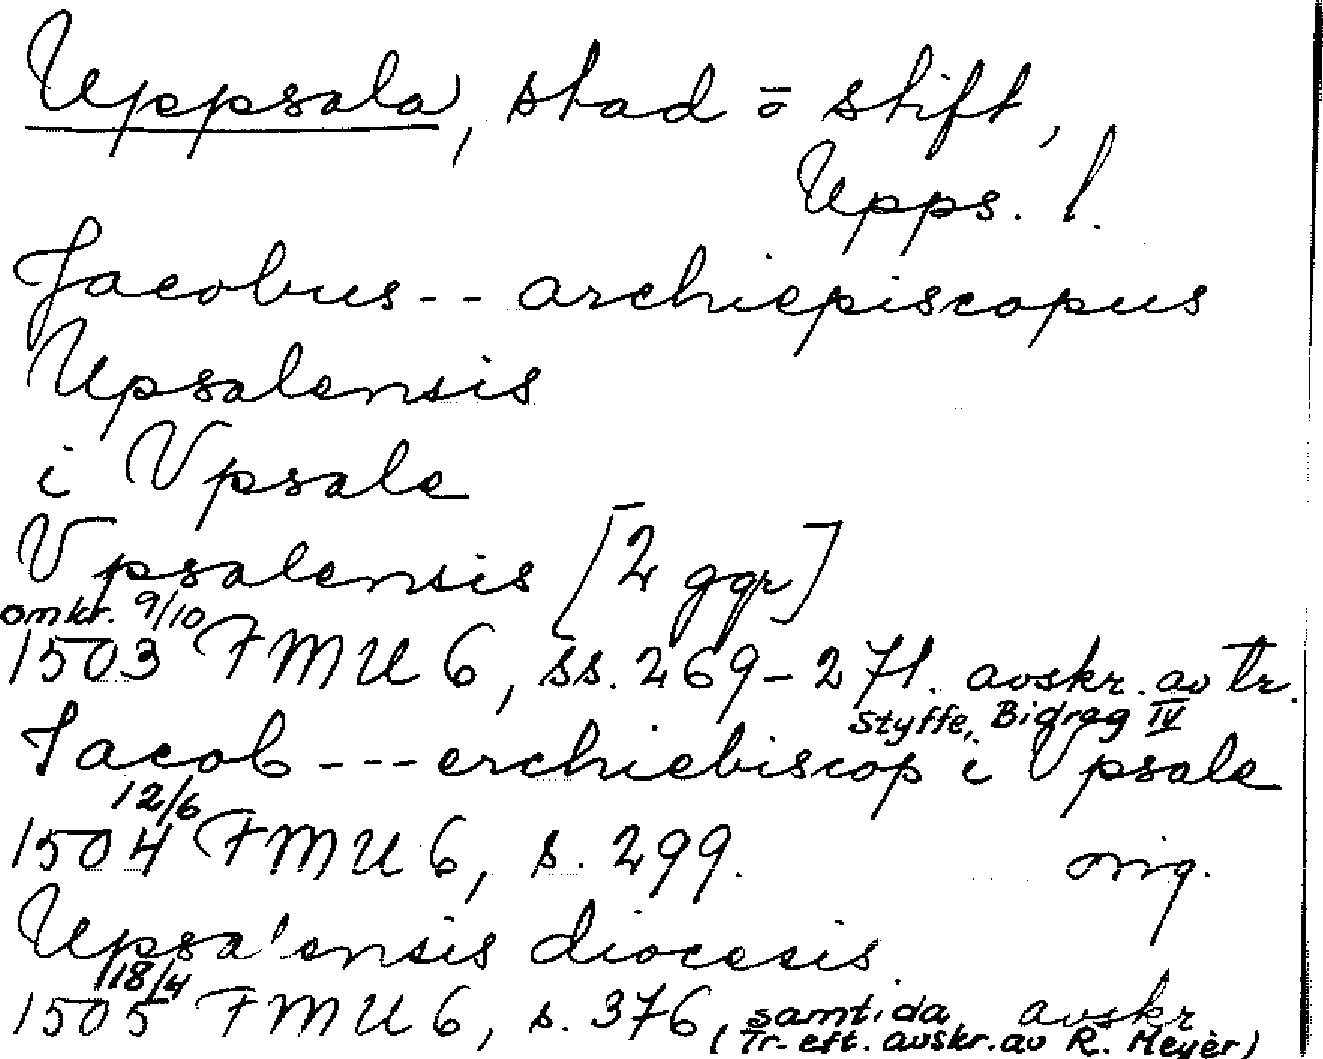 Uppsala, stad o stift,
Upps. l.
Jacobus -- archiepiscopus
Upsalensis
i Vpsale
Vpsalensis [2 ggr]
omkr. 9/10
1503 FMU 6, ss. 269-271. avskr. av tr.
Styffe, Bidrag IV
Jacob --- erchiebiscop i Vpsale
12/6
1504 FMU 6, s. 299. orig.
Upsa'ensis diocesis
18/4
1505 FMU 6, s. 376, samtida avskr
(Tr. eft. avskr. av R. Meyèr)